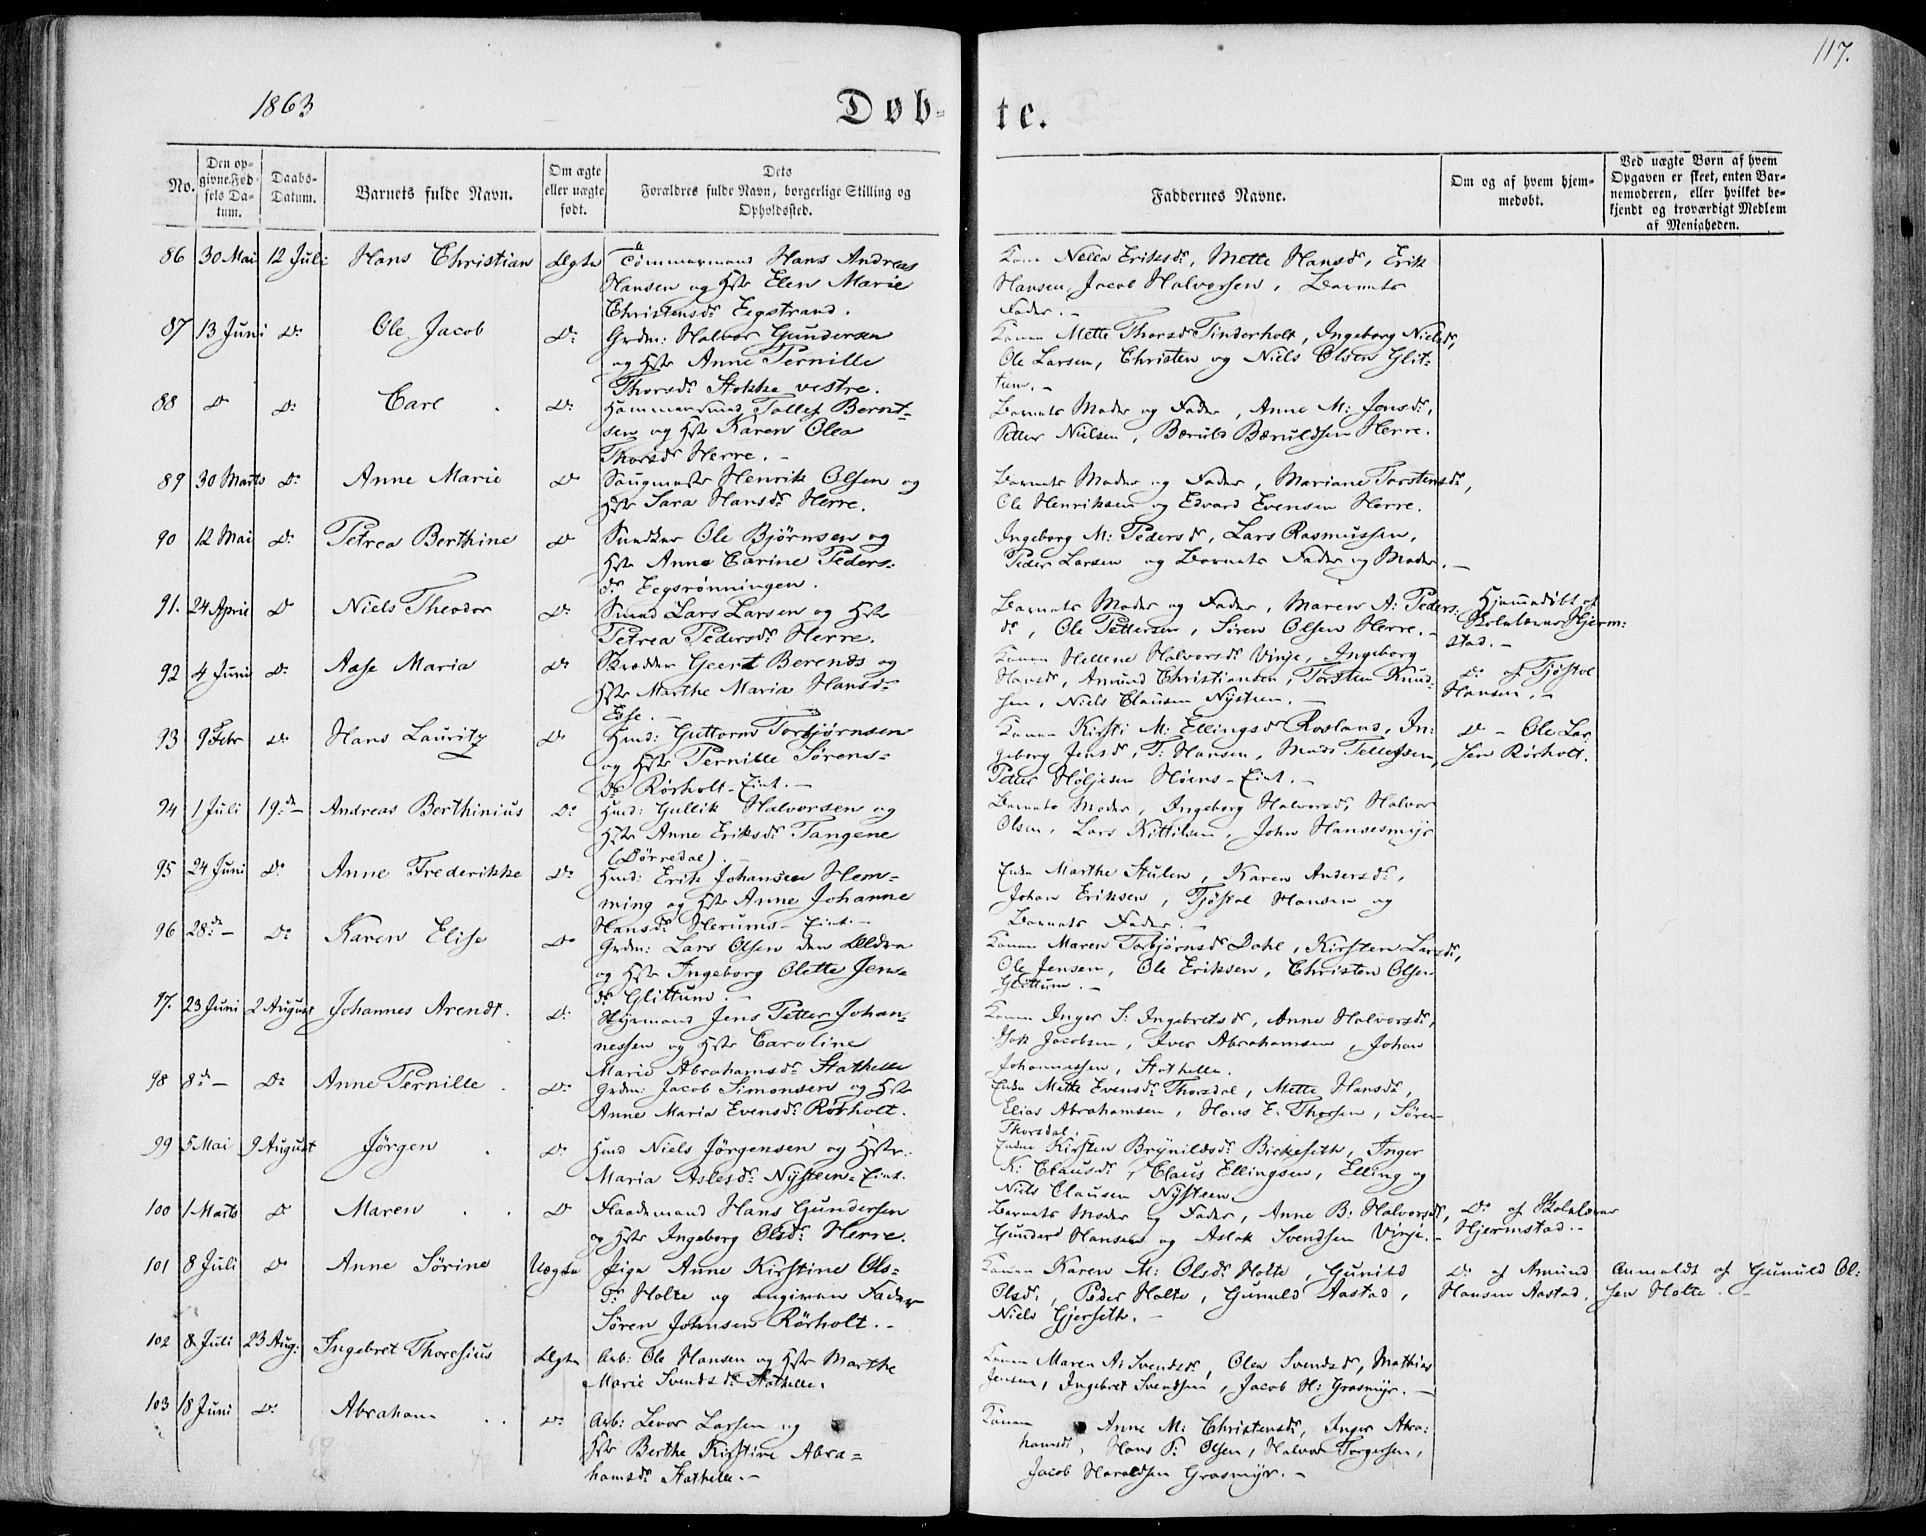 117.
1863
Døb-te.
No. Den opgivne Fødsels Datum. Daabs-Datum. Barnets fulde Navn. Om ægte eller uægte født. Dets Forældres fulde Navn, borgerlige Stilling og Opholdssted. Faddernes Navne. Om og af hvem hjemmedøbt. Ved uægte Børn af hvem Opgaven er skeet, enten Barnemoderen, eller hvilket bekjendt og troværdigt Medlem af Menigheden.
86 30 Mai 12 Juli Hans Christian Ægte Tømmermand Hans Andreas
Hansen og Hst Elen Marie
Christensdr Eegstrand.
Kone Nella Eriksdr, Mette Hansdr, Erik
Hansen, Jacob Halvorsen, Barnets
Fader.-
87 13 Juni Do Ole Jacob Do Grdm: Halvor Gundersen
og Hst Anne Pernille
Thorsdr Stokke vestre.
Konen Mette Thorsdr Tinderholt, Ingeborg Nielsdr,
Ole Larsen, Christen og Niels Olsen Glit-
tum.-
88 Do Do Carl Do Hammersmed Tollef Bernt-
sen og Hst Karen Olea
Thorsdr Herre.-
Barnets Moder og Fader, Anne M: Jensdr,
Petter Nielsen, Bærulf Bærulfsen Herre.
89 30 Marts Do Anne Marie Do Saugmester Henrik Olsen og
Hst Sara Hansdr Herre.
Barnets Moder og Fader, Mariane Torstensdr,
Ole Henriksen og Edvard Evensen Herre.
90 12 Mai Do Petrea Berthine Do Snedker Ole Bjørnsen og
Hst Anne Carine Peders-
dr Eegsrønningen.
Ingeborg M: Pedersdr, Lars Rasmussen,
Peder Larsen og Barnets Fader og Moder.-
91. 24 April Do Niels Theodor Do Smed Lars Larsen og Hst
Petrea Pedersdr Herre.
Barnets Moder og Fader, Maren A: Peders-
dr, Ole Pettersen, Søren Olsen Herre.-
Hjemmedøbt af
Skolelærer Hjerm-
stad.-
92 4 Juni Do Aase Maria Do Skrædder Geert Berends og
Hst Marthe Maria Hansdr
Esse.-
Konen Hellene Halvorsdr Vinje, Ingeborg
Hansdr, Amund Christiansen, Torsten Knud-
sen, Niels Clausen Nysteen.-
Do af Tjøstol
Hansen.-
93 9 Febr Do Hans Lauritz Do Hmd: Guttorm Torbjørnsen
og Hst Pernille Sørens-
dr Rørholt-Eint.-
Konen Kirsti M: Ellingsdr Rosland, In-
geborg Jensdr, T: Hansen, Mads Tellefsen,
Peter Høljesen Høens-Eint.-
Do - Ole Lar-
sen Rørholt.
94 1 Juli 19de- Andreas Berthinius Do Hmd: Gullik Halvorsen og
Hst Anne Eriksdr Tangene
(Dørredal).-
Barnets Moder, Ingeborg Halvorsdr, Halvor
Olsen, Lars Kittilsen, John Hansesmyr
95 24 Juni Do Anne Frederikke Do Hmd: Erik Johansen Hem-
ming og Hst Anne Johanne
Hansdr Herums-Eint.-
Enke Marthe Stulen, Karen Andersdr,
Johan Eriksen, Tjøstol Hansen og
Barnets Fader.-
96 28de- Do Karen Elise Do Grdm: Lars Olsen den Ældre
og Hst Ingeborg Olette Jens-
dr Glittum.-
Konen Maren Torbjørnsdr Dahl, Kirsten Larsdr,
Ole Jensen, Ole Eriksen, Christen Olsen
Glittum.-
97. 23 Juni 2 August Johannes Arendt. Do Styrmand Jens Petter Johan-
nessen og Hst Caroline
Marie Abrahamsdr Stathelle
Konen Inger S: Ingebretsdr, Anne Halvorsdr,
Isak Jacobsen, Iver Abrahamsen, Johan
Johannessen, Stathelle.
98 8de- Do Anne Pernille Do Grdm: Jacob Simonsen og Hst
Anne Maria Evensdr Rørholt.
Enke Mette Evensdr Thorsdal, Mette Hansdr,
Elias Abrahamsen, Hans E. Thorsen, Søren
Thorsdal.-
99 5 Mai 9 August Jørgen Do Hmd Niels Jørgensen og Hst:
Maria Aslesdr Nysteen-Eint.
Enken Kirsten Brynildsdr Birkeseth, Inger
K: Clausdr, Claus Ellingsen, Elling og
Niels Clausen Nysteen.
100 1 Marts Do Maren Do Flaademand Hans Gundersen
og Hst Ingeborg Olsdr Herre.
Barnets Moder og Fader, Anne B: Halvorsdr,
Gunder Hansen og Aslak Svendsen Vinje.-
Do af Skolelærer
Hjermstad.-
101 8 Juli Do Anne Sørine Uægte Pige Anne Kirstine Ols-
dr Holte og angiven Fader
Søren Johnsen Rørholt.-
Konen Karen M: Olsdr Holte, Gunild
Olsdr, Peder Holte, Gunuld Aastad,
Niels Gjerseth.-
Do af Amund
Hansen Aastad.
Anmeldt af Gunuld Ol-
sen Holte.-
102 8 Juli 23 Aug: Ingebret Thoresius Ægte Arb: Ole Hansen og Hst Marthe
Marie Svendsdr Stathelle.
Konen Maren A: Svendsdr, Olea Svendsdr, Mathias
Jensen, Ingebret Svendsen, Jacob H: Grasmyr.-
103 18 Juni Do Abraham Do Arb: Levor Larsen og
Hst Berthe Kirstine Abra-
hamsdr Stathelle.-
Konen Anne M: Christensdr, Inger Abra-
hamsdr, Hans P. Olsen, Halvor Torgersen,
Jacob Haraldsen Grasmyr.-